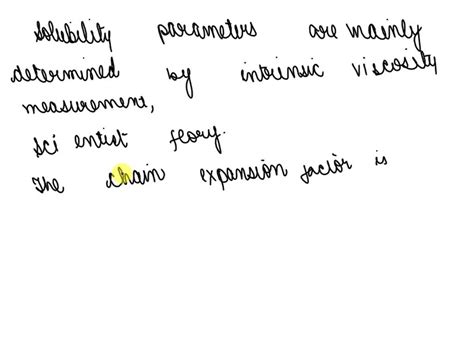 Solubility parameters are mainly
determined by intrinsic viscosity
measurement,
Sci entist flory.
The chain expansion factor is